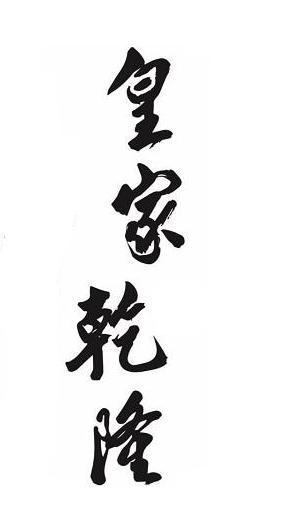 皇家乾隆